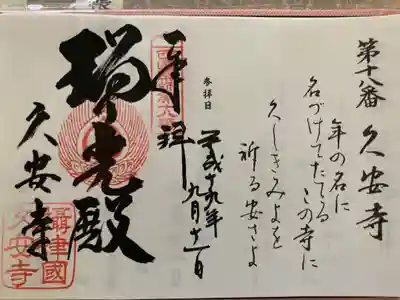 第十八番 久安寺
年の名に
名づけてたてる この寺に
久しきみよを
祈る安さよ
参拝日
平成十九年
九月十一日
奉
拝
瑞光殿
久安寺
摂津國
久安寺